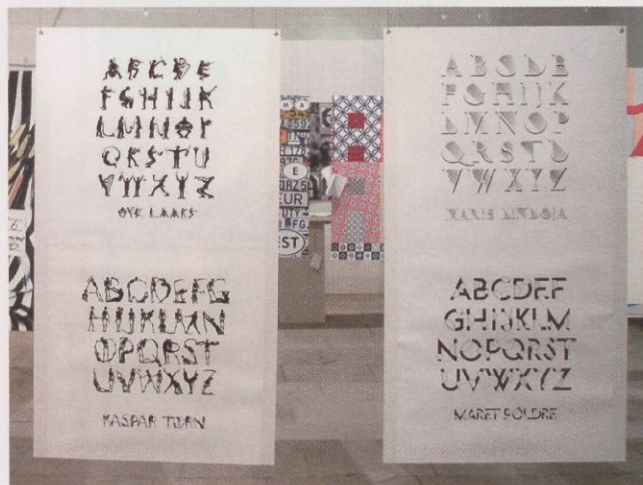 ABCDE
FGHIJK
LMNOP
QRSTU
VWXYZ
OVE LAAKS
ABCDEFG
HIJKLMN
OPQRST
UVWXYZ
KASPAR TÜRN
ABCDE
FGHIJK
LMNOP
QRSTU
VWXYZ
ABCDEF
GHIJKLM
NOPQRST
UVWXYZ
MARET PÕLDRE
E
EUR
EST